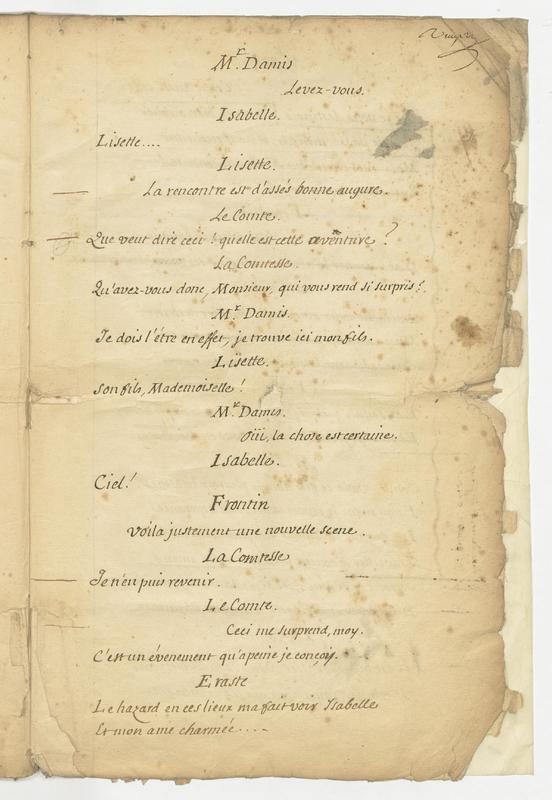 Mr. Damis
Levez-vous.
Isabelle.
Lisette....
Lisette.
La rencontre est d'assés bonne augure.
Le Comte.
Que veut dire ceci ! quelle est cette aventure ?
La Comtesse.
Qu'avez-vous donc, Monsieur, qui vous rend si surpris ?
Mr. Damis.
Je dois l'étre en effet, je trouve ici mon fils.
Lisette.
son fils, Mademoiselle !
Mr. Damis.
oüi, la chose est certaine.
Isabelle.
Ciel !
Frontin
voila justement une nouvelle scene.
La Comtesse
Je n'en puis revenir.
Le Comte.
Ceci me surprend, moy.
C'est un évenement qu'a peine je conçoy.
Eraste
Le hazard en ces lieux ma fait voir Isabelle
Et mon ame charmée....